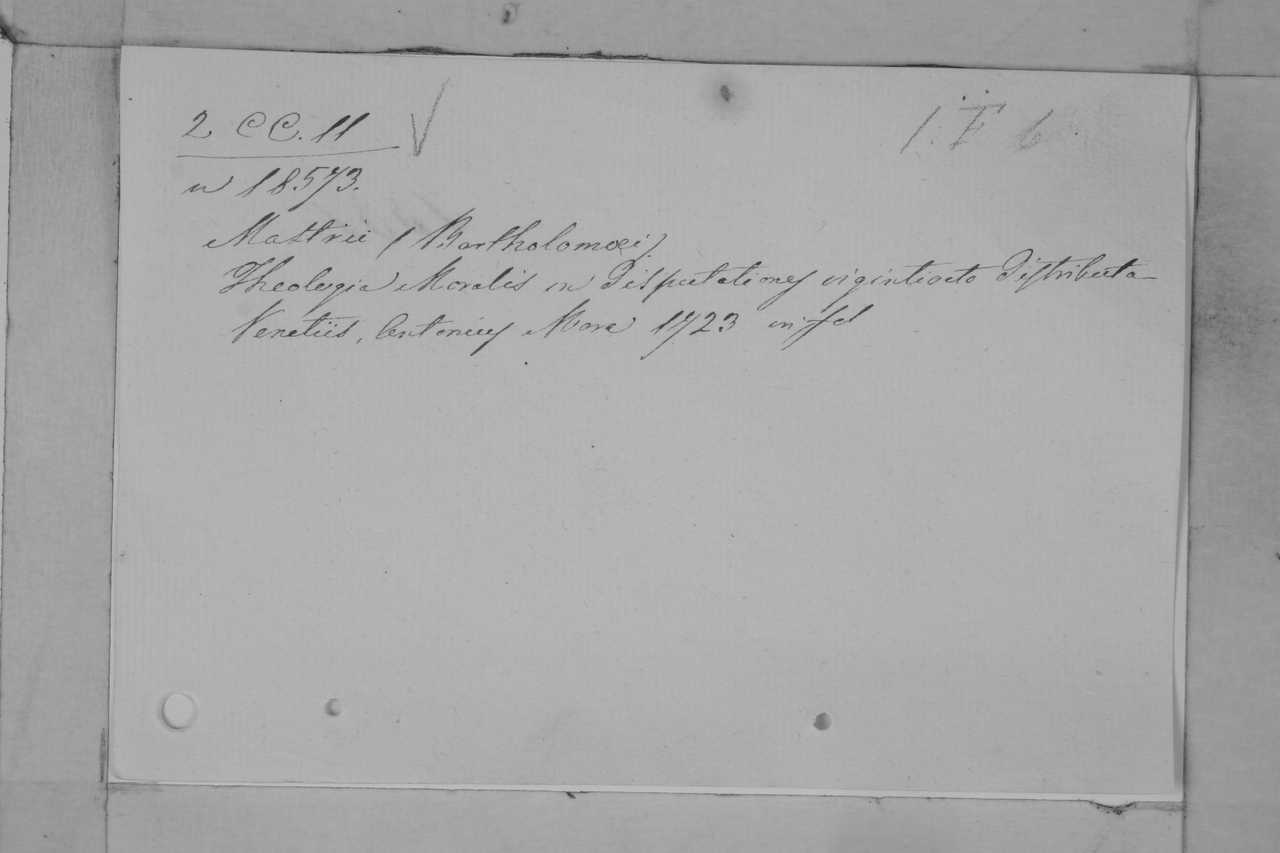 2 CC. 11 V
1. F 6
n 18573.
Mastrii (Bartholomæi)
Theologia Moralis in Disputationes vigintiocto Distributa
Venetiis, Antonius Mora 1723 in fol